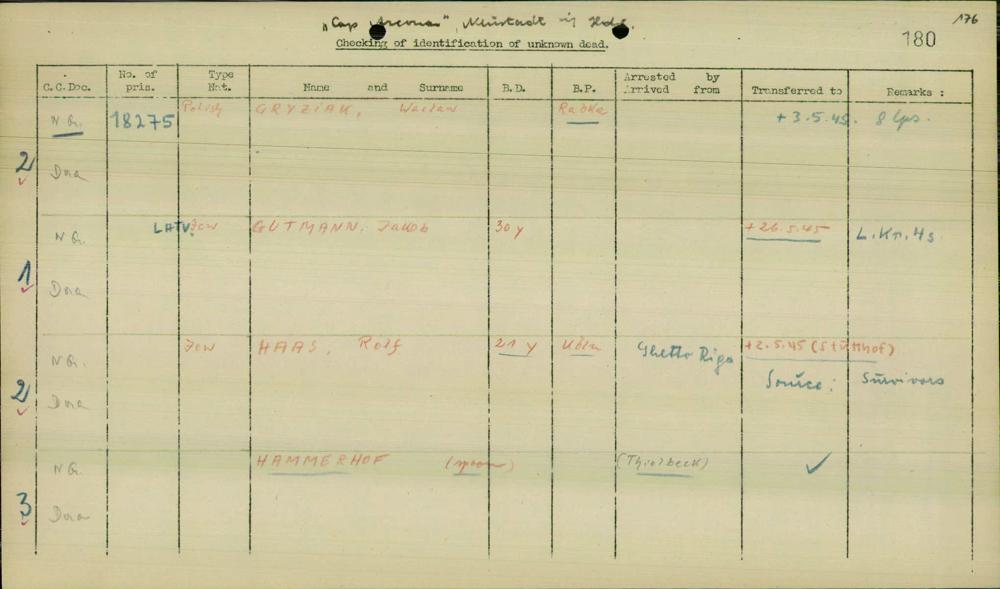 "Cap Arcona", Neustadt in Hols.
176
180
Checking of identification of unknown dead.
C.C.Doc. No. of pris. Type Nat. Name and Surname B.D. B.P. Arrested by Arrived from Transferred to Remarks :
N G. 18275 Polish GRYZIAK, Waclaw Rabka + 3.5.45. 8 Lps.
2 Dora
N G. LATV. Jew GUTMANN, Jakob 30 y + 26.5.45 L.Kr. 4s
1 Dora
N G. Jew HAAS, Rolf 21 y Köln Ghetto Riga + 2.5.45 (Stutthof)
Source: Survivors
2 Dora
N G. HAMMERHOF (spoon) (Thielbeck) ✓
3 Dora